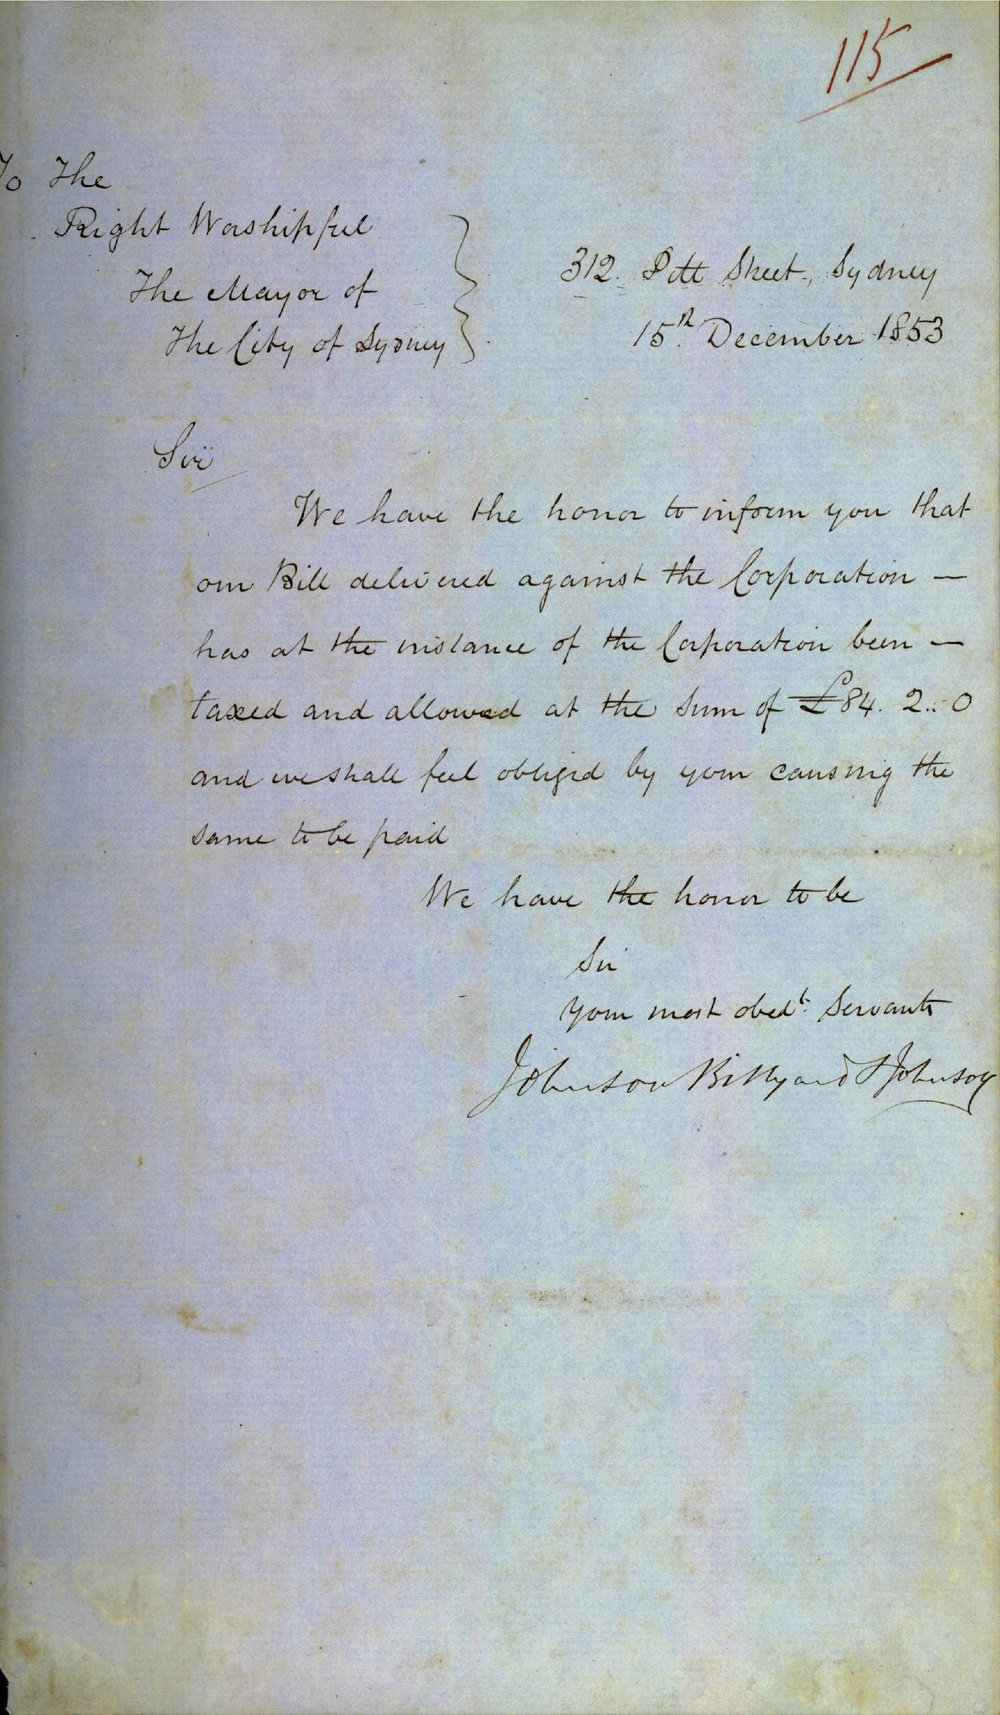 115
To The
Right Worshipful
The Mayor of
The City of Sydney
312. Pitt Street, Sydney
15th. December 1853
Sir
We have the honor to inform you that
our Bill delivered against the Corporation —
has at the instance of the Corporation been —
taxed and allowed at the sum of £84. 2.. 0
and we shall feel obliged by your causing the
same to be paid
We have the honor to be
Sir
Your most obedt. Servants
Johnson Billyard & Johnson